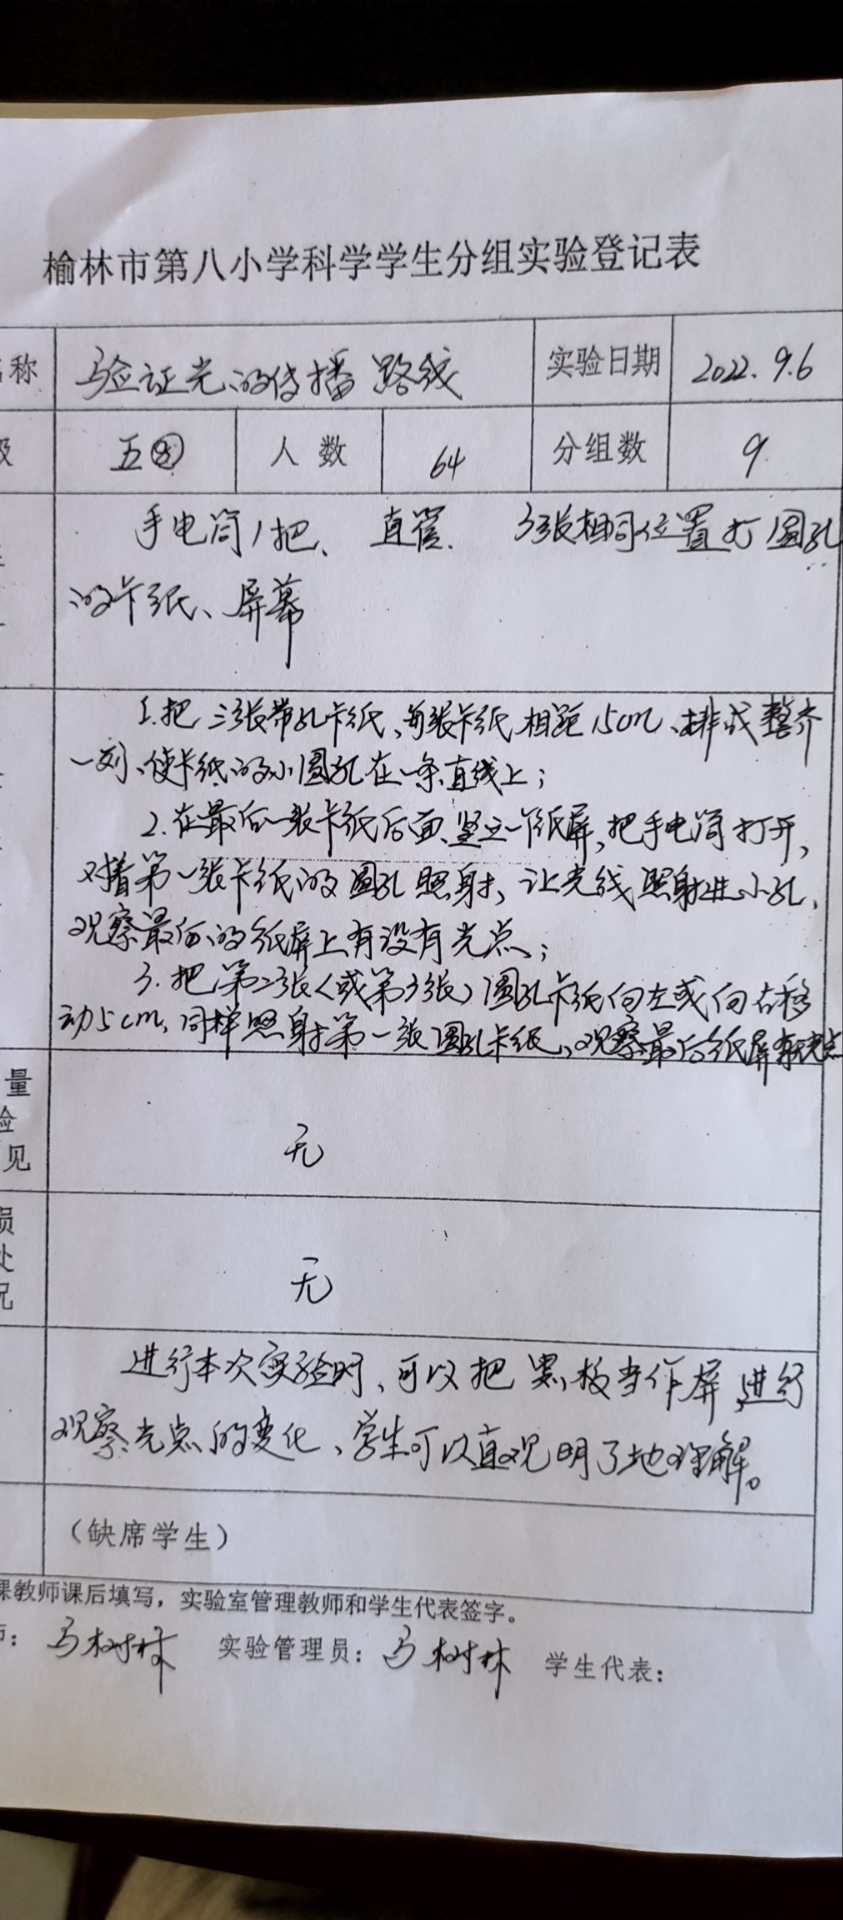 榆林市第八小学科学学生分组实验登记表
名称 验证光的传播路线 实验日期 2022.9.6
级 五④ 人数 64 分组数 9
手电筒1把、直管、3张相同位置打1圆孔
的卡纸、屏幕
1.把三张带孔卡纸、每张卡纸相距15cm、排成整齐
一列、使卡纸的小圆孔在一条直线上；
2.在最后一张卡纸后面竖立一个纸屏,把手电筒打开,
对着第一张卡纸的圆孔照射,让光线照射进小孔,
观察最后的纸屏上有没有光点；
3.把第2张(或第3张)圆孔卡纸向左或向右移
动5cm,同样照射第一张圆孔卡纸、观察最后纸屏有无光点
量
验
见
无
损
处
况
无
进行本次实验时、可以把黑板当作屏,进行
观察光点的变化、学生可以直观明了地理解。
（缺席学生）
课教师课后填写，实验室管理教师和学生代表签字。
师：马树林 实验管理员：马树林 学生代表：